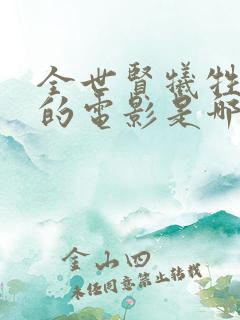 金世賢犧牲
的電影是哪
金山四
未经同意禁止转载